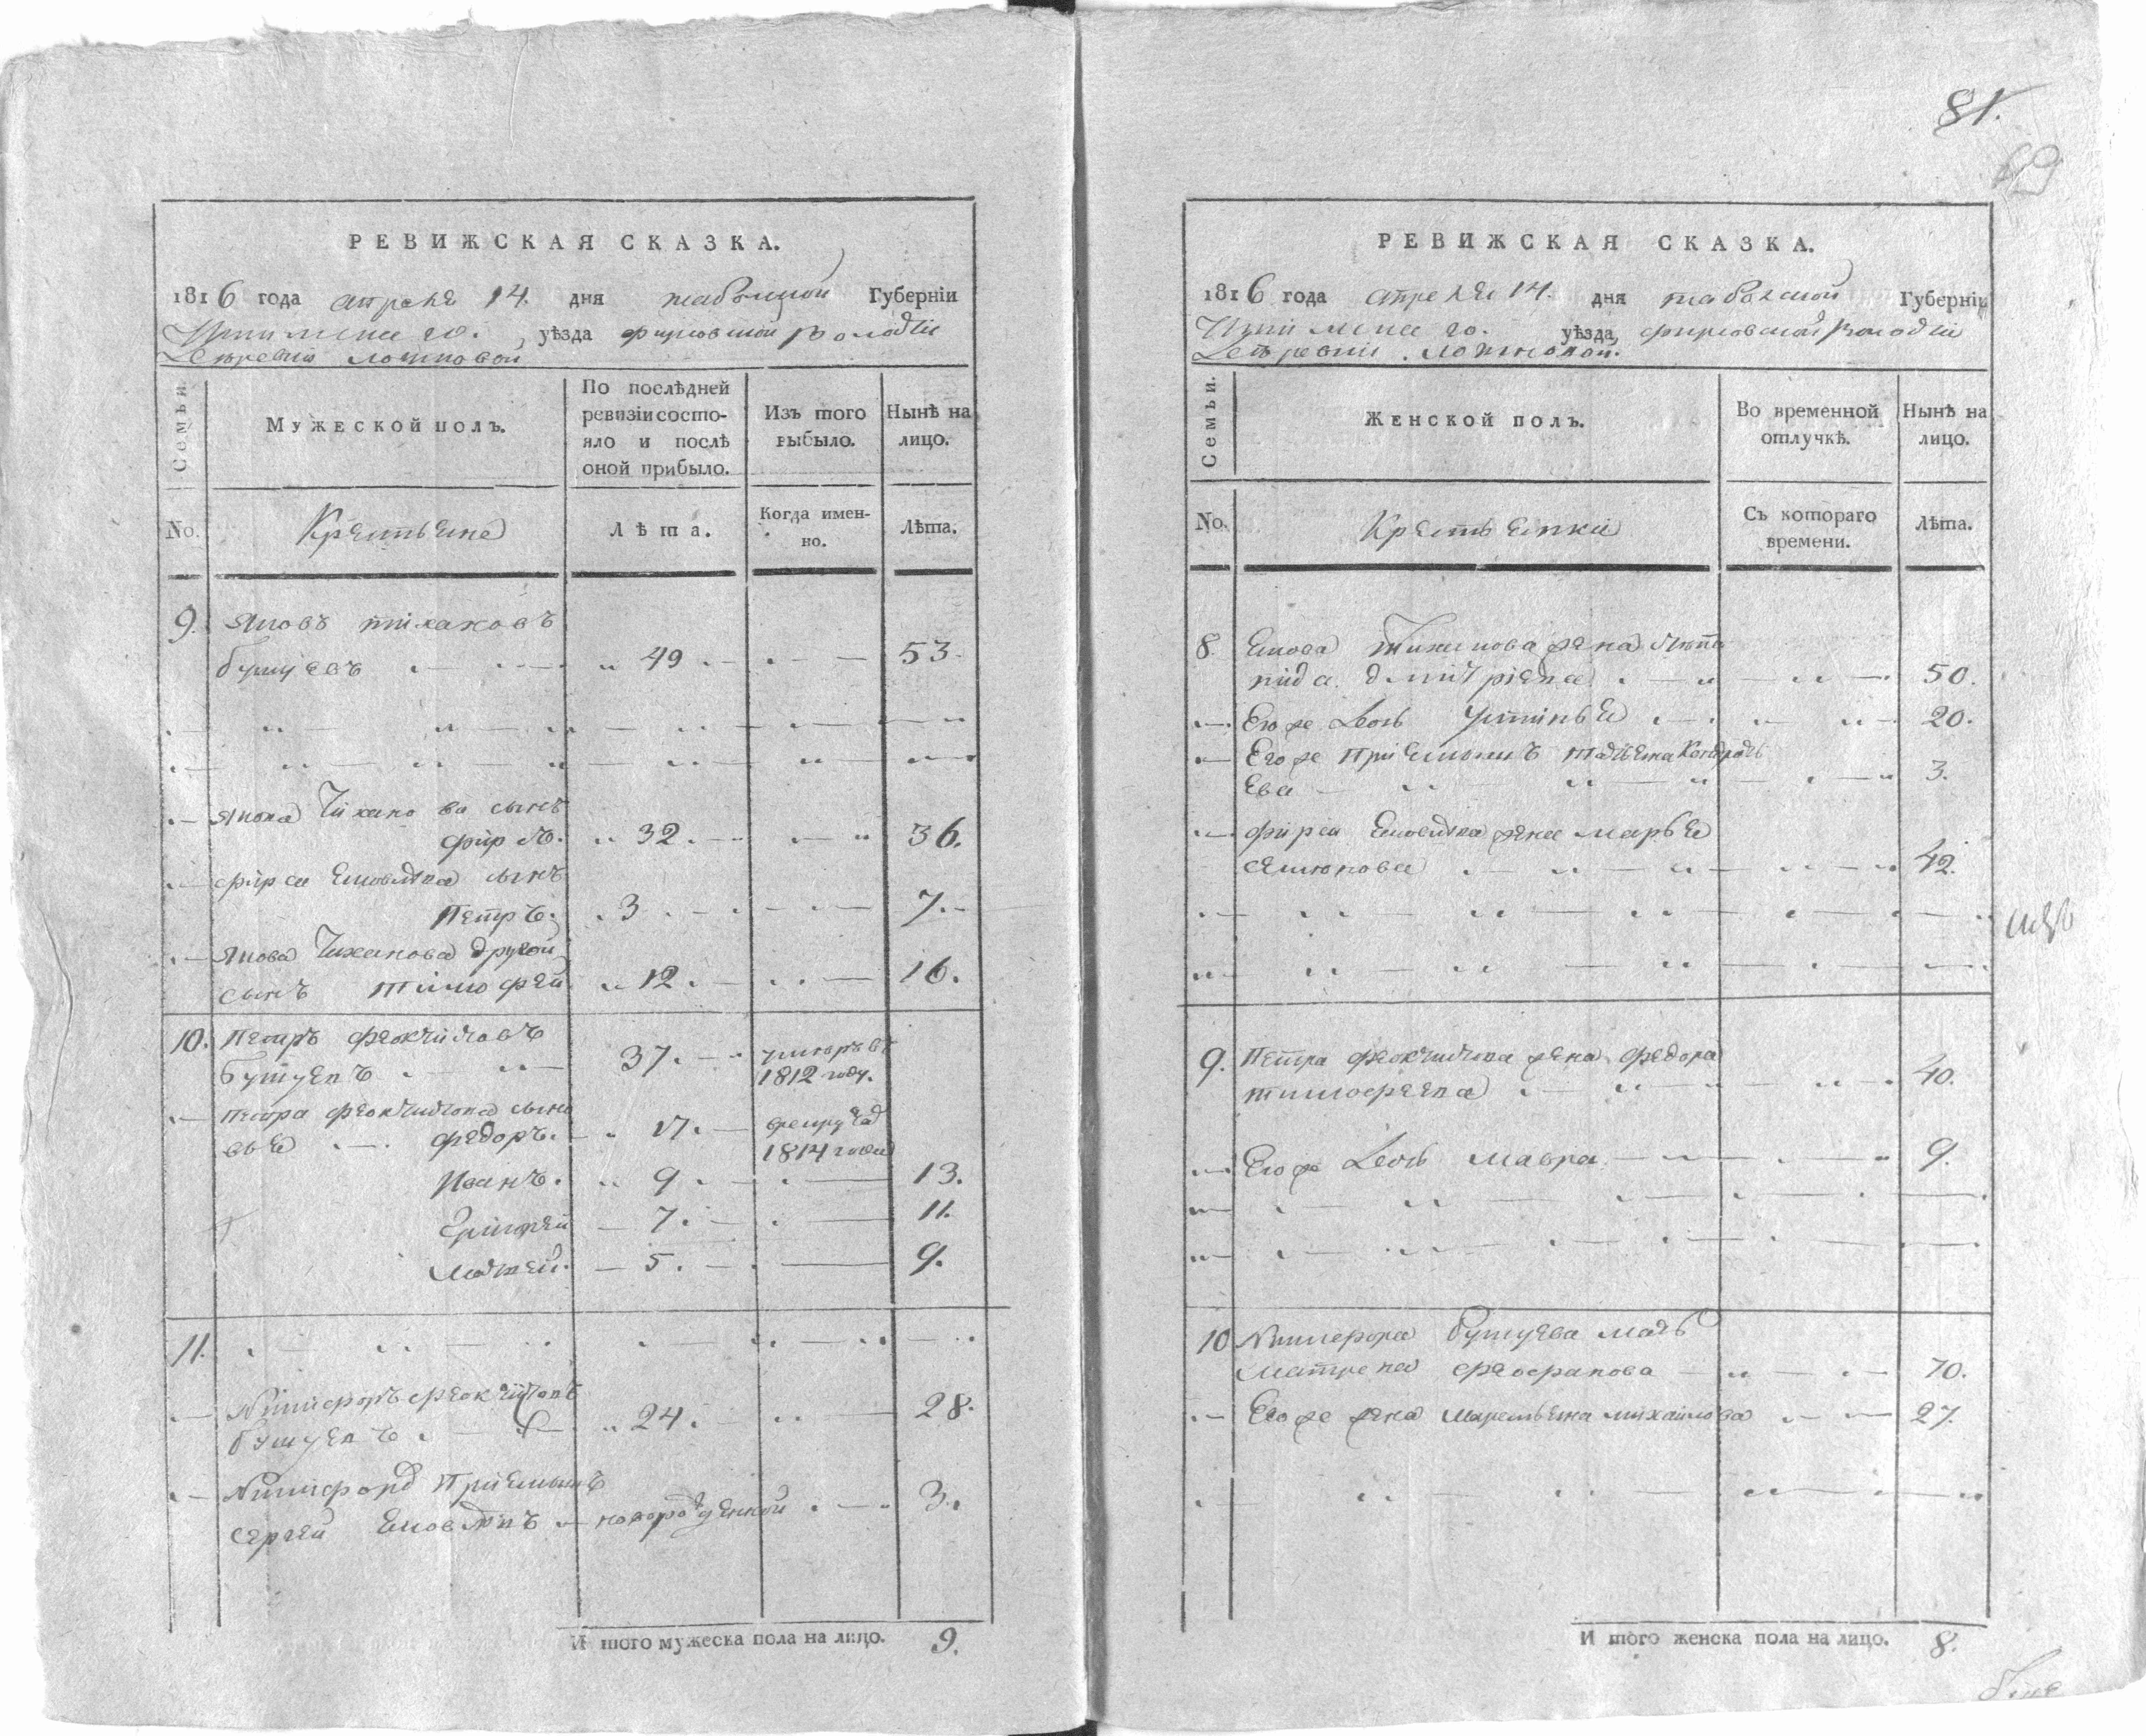 РЕВИЖСКАЯ СКАЗКА.
1816 года апреля 14. дня табольской Губернїи
Ишимскаго. уѣзда фирсовской волости
Деревни локтовой
Семьи.
МУЖЕСКОЙ ПОЛЪ.
По послѣдней
ревизїи состо-
яло и послѣ
оной прибыло.
Изъ того
выбыло.
Нынѣ на
лицо.
No.
Крестьяне
Лѣта.
Когда имен-
но.
Лѣта.
9. Яковъ тихановъ
бутуевъ 49 53.
Якова Тиханова сынъ
фирсъ. 32. 36.
фирса Сынъ
Петръ. 3 7.
Якова Тиханова другой
сынъ тимофей 12. 16.
10. Петръ феоктистовъ умеръ въ
Бутуевъ 37. 1812 году.
Петра феоктистова сыно
вья федоръ. 17. 1814 года
Иванъ. 9. 13.
Григорей 7. 11.
Матвей. 5. 9.
11.
Никифоръ феоктистовъ
бутуевъ 24. 28.
Никифора Приемышъ
Сергей Яковлевъ новорожденной 3.
И того мужеска пола на лицо. 9.
81.
69
РЕВИЖСКАЯ СКАЗКА.
1816 года апреля 14. дня табольской Губернїи
Ишимскаго. уѣзда, фирсовской волости
Деревни локтовой.
Семьи.
ЖЕНСКОЙ ПОЛЪ.
Во временной
отлучкѣ.
Нынѣ на
лицо.
No.
Крестьянки
Съ котораго
времени.
Лѣта.
8. Якова Тиханова жена Степа
нида дмитриева 50.
Его же Дочь Устинья 20.
Его же приемышъ татьяна Кондрать
ева 3.
фирса Яковлева жена марья
семионова 42.
9. Петра феоктистова жена федора
тимофеева 40.
Его же Дочь мавра 9.
10 Никифора бутуева мать
матрена феофанова 70.
Его же жена маремьяна михайлова 27.
И того женска пола на лицо. 8.